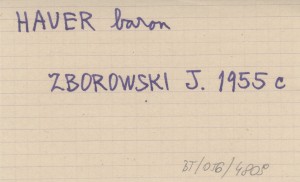 HAUER baron
ZBOROWSKI J. 1955 c
BT/016/4808